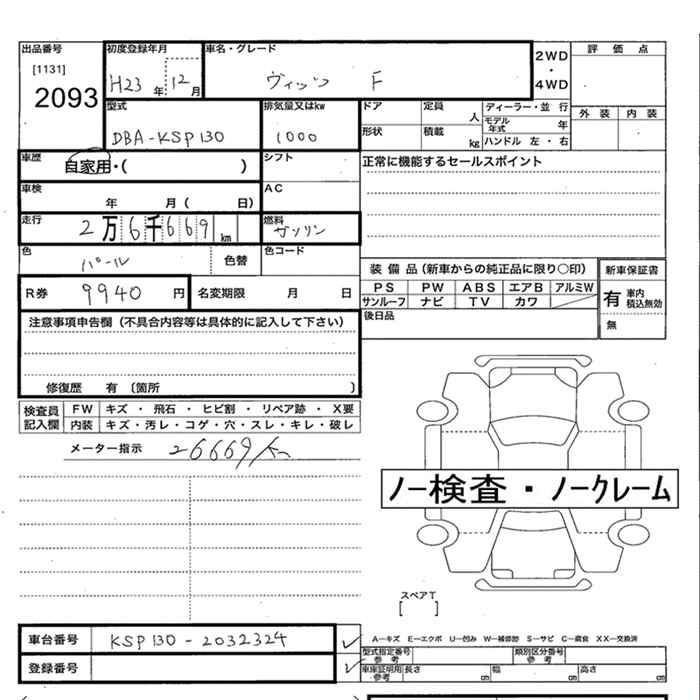 出品番号 初度登録年月 車名・グレード 2WD・4WD 評価点
[1131] H23年 12月 ヴィッツ F
2093
型式 排気量又はkw ドア 定員 人 ディーラー・並行 外装 内装
DBA-KSP130 1000 形状 積載 kg モデル年式 年
ハンドル 左・右
車歴 自家用・( ) シフト 正常に機能するセールスポイント
車検 年 月( 日) AC
走行 2万6千669km 燃料 ガソリン
色 パール 色替 色コード
装備品(新車からの純正品に限り○印) 新車保証書
R券 9940円 名変期限 月 日 PS PW ABS エアB アルミW 有 車内積込無効
サンルーフ ナビ TV カワ
注意事項申告欄(不具合内容等は具体的に記入して下さい) 後日品 無
修復歴 有 〔箇所 )
検査員記入欄 FW キズ・飛石・ヒビ割・リペア跡・X要
内装 キズ・汚レ・コゲ・穴・スレ・キレ・破レ
メーター指示 26669km
ノー検査・ノークレーム
スペアT
[ ]
車台番号 KSP130-2032324 A―キズ E―エクボ U―凹み W―補修跡 S―サビ C―腐食 XX―交換済
登録番号 型式指定番号 参考 類別区分番号 参考
車庫証明用 参考 長さ cm 幅 cm 高さ cm